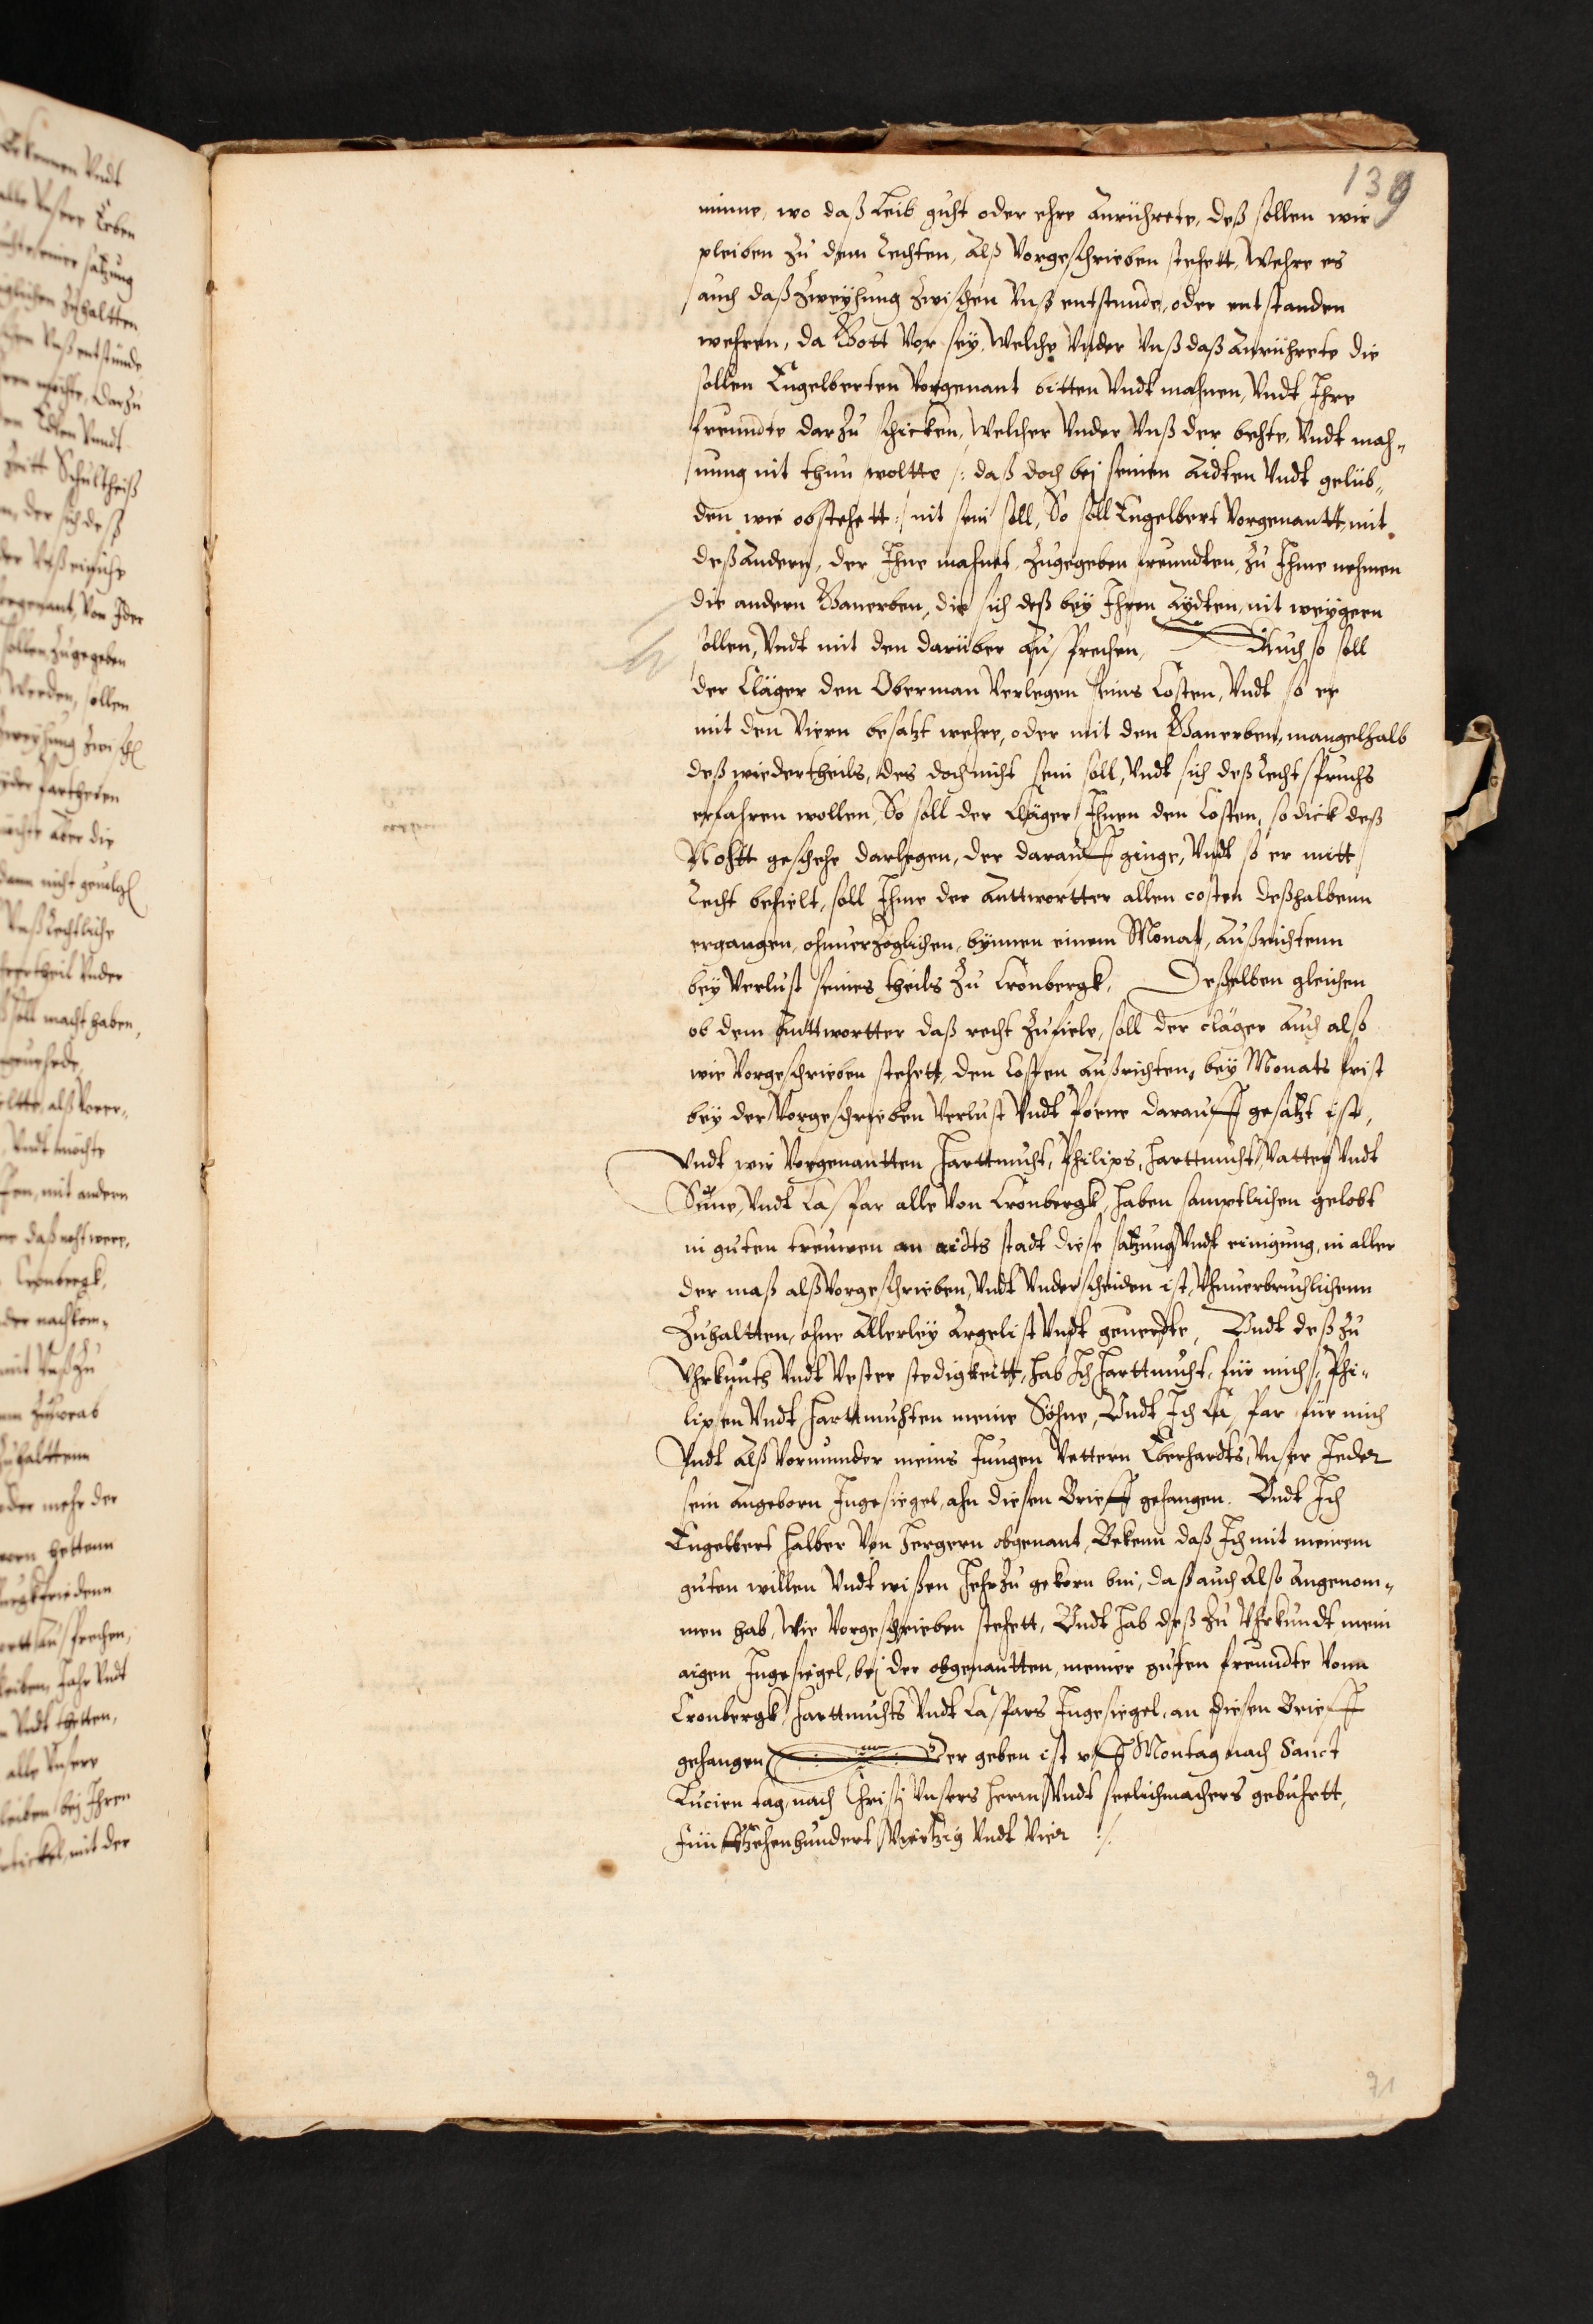 139
minne, wo daß Leib guht oder ehre Anrührete, deß sollen wir
pleiben zu dem Rechten, Alß Vorgeschrieben stehett, Wehre es
auch daß Zweyhung Zwischen Vnß entstunde, oder entstanden
wehren, da Gott Vor sey, Welche Vnder Vnß daß Anrührete die
sollen Engelberten Vorgenant bitten Vndt mahnen, Vndt Ihre
freundte darZu schicken, Welcher Vnder Vnß der bethe, Vndt mah-
nung nit thun woltte /: daß doch bej seinen Aidten Vndt gelüb-
den wie obstehett :/ nit sein soll, So soll Engelbert Vorgenantt, mit
deß Andern, der Ihne mahnet, Zugegeben freundten, Zu Ihme nehmen
die andern Ganerben, die sich deß bey Ihren Aydten, nit weygern
sollen, Vndt mit den darüber Auß sprechen, Auch so soll
der Cläger den Oberman Verlegen seins Costen, Vndt so er
mit den Viern besatzt wehre, oder mit den Ganerben, mangelhalb
deß wiedertheils, des doch nicht sein soll, Vndt sich deß Rechtspruchs
erfahren wollen, So soll der Cläger Ihnen den Costen, so dick deß
Nohtt geschehe darlegen, der darauff ginge, Vndt so er mitt
Recht behielt, soll Ihme der Anttwortter allen costen deßhalbenn
ergangen, ohnuerzöglichen, bynnen einem Monat, Außrichtenn
bey Verlust seines theils Zu Cronbergk, Deßelben gleichen
ob dem Anttwortter daß recht Zufiele, soll der cläger Auch also
wie Vorgeschrieben stehett, den Costen Außrichten, bey Monats frist
bey der Vorgeschrieben Verlust Vndt Poene darauff gesatzt ist,
Vndt wir Vorgenantten Harttmuht, Philips, Harttmuht, Vatter Vndt
Sune, Vndt Caspar alle Von Cronbergk, haben samptlichen gelobt
in guten treuwen an aidts stadt diese satzung Vndt einigung, in aller
der maß alß Vorgeschrieben, Vndt Vnderscheiden ist, Vhnuerbruchlichenn
Zuhaltten, ohne Allerley Argelist Vndt geuerdte, Vndt deß Zu
Vhrkunth Vndt Vester stedigkeitt, hab Ich Harttmuht, für mich, Phi-
lipsen Vndt Harttmuhten meine Söhne, Vndt Ich Caspar für mich
Vndt Alß Vormunder meins Jungen Vettern Eberhardts, Vnser Jeder
sein Angeborn Ingesiegel, ahn diesen Brieff gehangen. Vndt Ich
Engelbert Halber Von Hergern obgenant, Bekenn daß Ich mit meinem
guten willen Vndt wißen HehrZu gekorn bin, daß auch Also Angenom-
men hab, Wie Vorgeschrieben stehett, Vndt hab deß Zu Vhrkundt mein
aigen Ingesiegel, bej der obgenantten, meiner guten freundte Vonn
Cronbergk, Harttmuhts Vndt Caspars Ingesiegel, an diesen Brieff
gehangen, Der geben ist vff Montag nach Sanct
Lucien tag, nach Christj Vnsers Herrn Vndt seelichmachers gebuhrtt,
Fünffzehenhundert Viertzig Vndt Vier /.
71